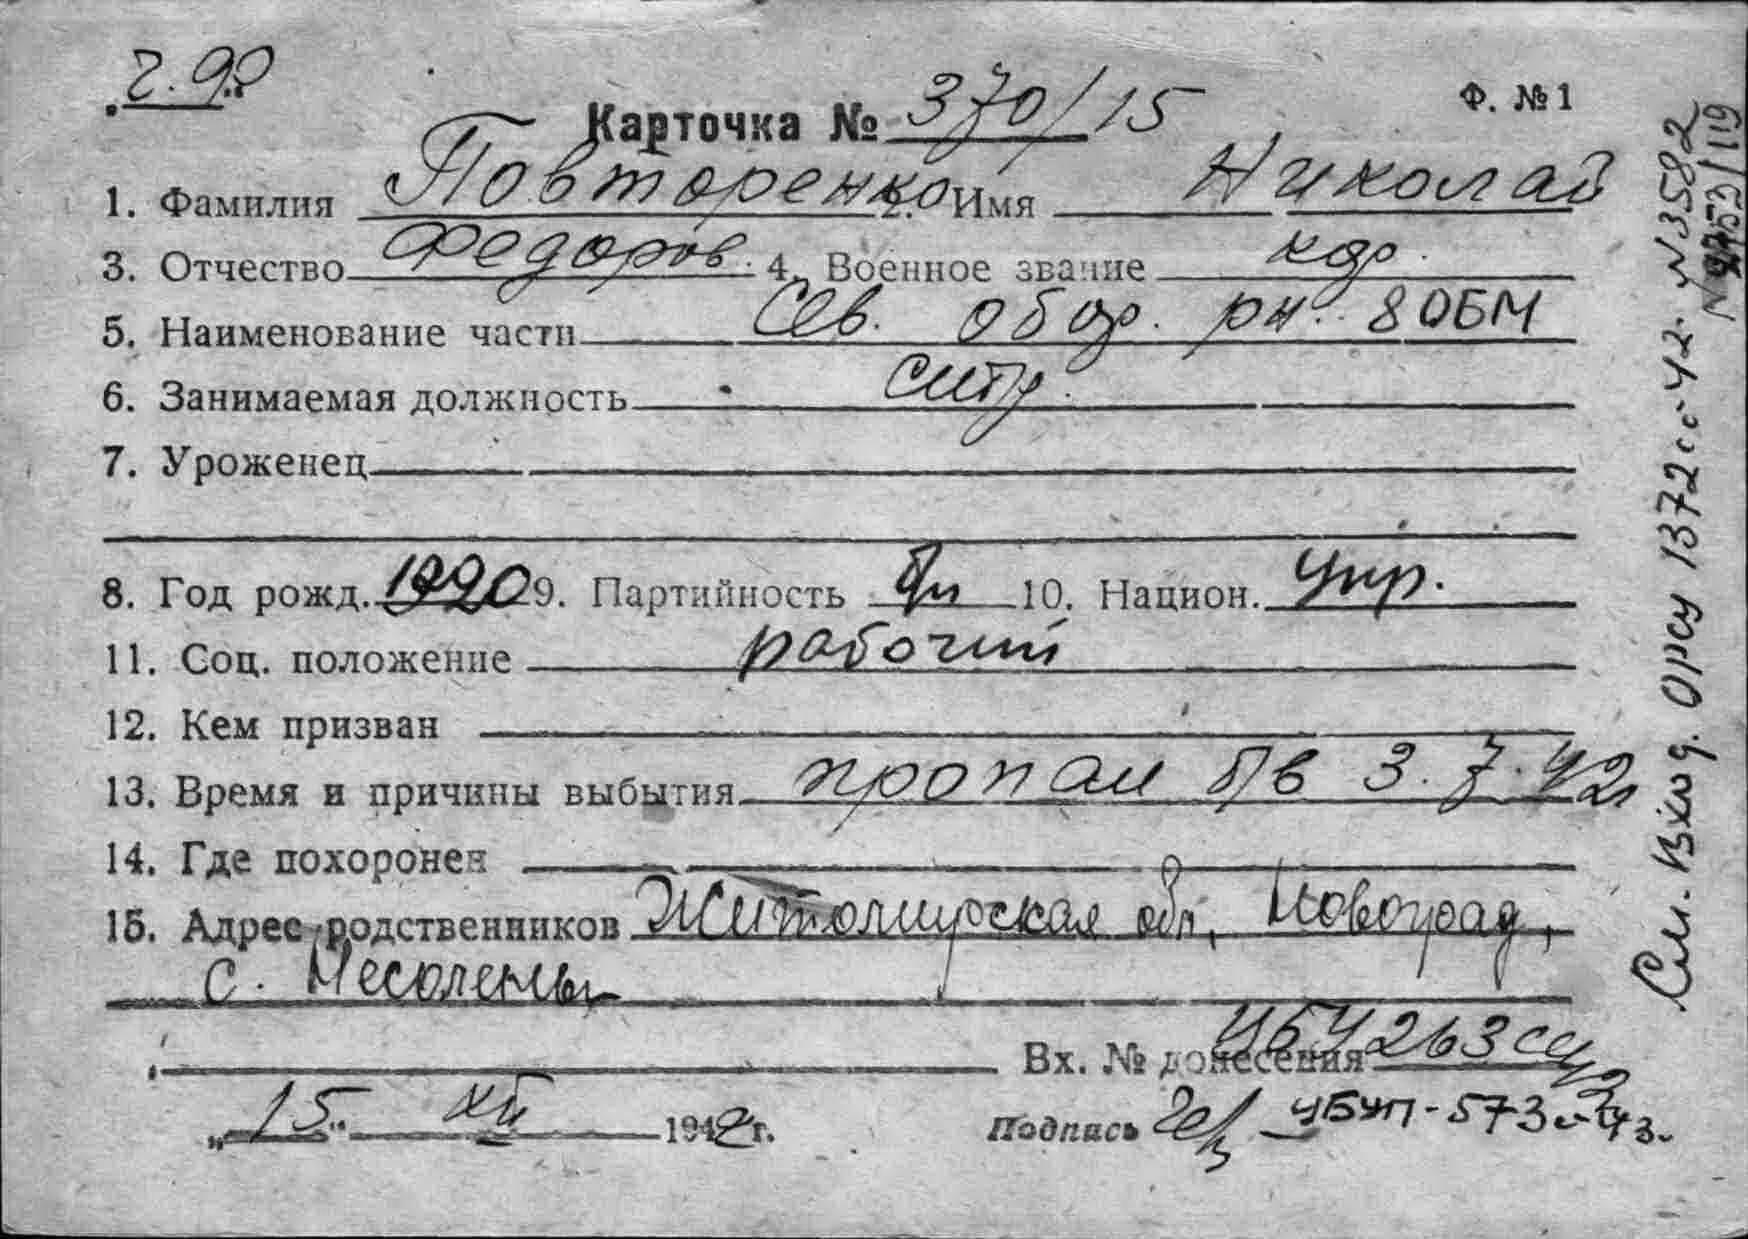 Карточка № 370/15
Ф. № 1
1. Фамилия Повторенко 2. Имя Николай
3. Отчество Федоров. 4. Военное звание
5. Наименование части обор. рн. 8 ОБМ
6. Занимаемая должность
7. Уроженец
8. Год рожд. 1920 9. Партийность б/п 10. Национ. Укр.
11. Соц. положение рабочий
12. Кем призван
13. Время и причины выбытия пропал б/в 3.7.42г
14. Где похоронен
15. Адрес родственников Житомирская обл, Новоград,
с. Несолень
Вх. № донесения
„15“ XII 1942 г.
Подпись УБУП-573с-43.
См. вход. Орсу 1372сс-42. N3582